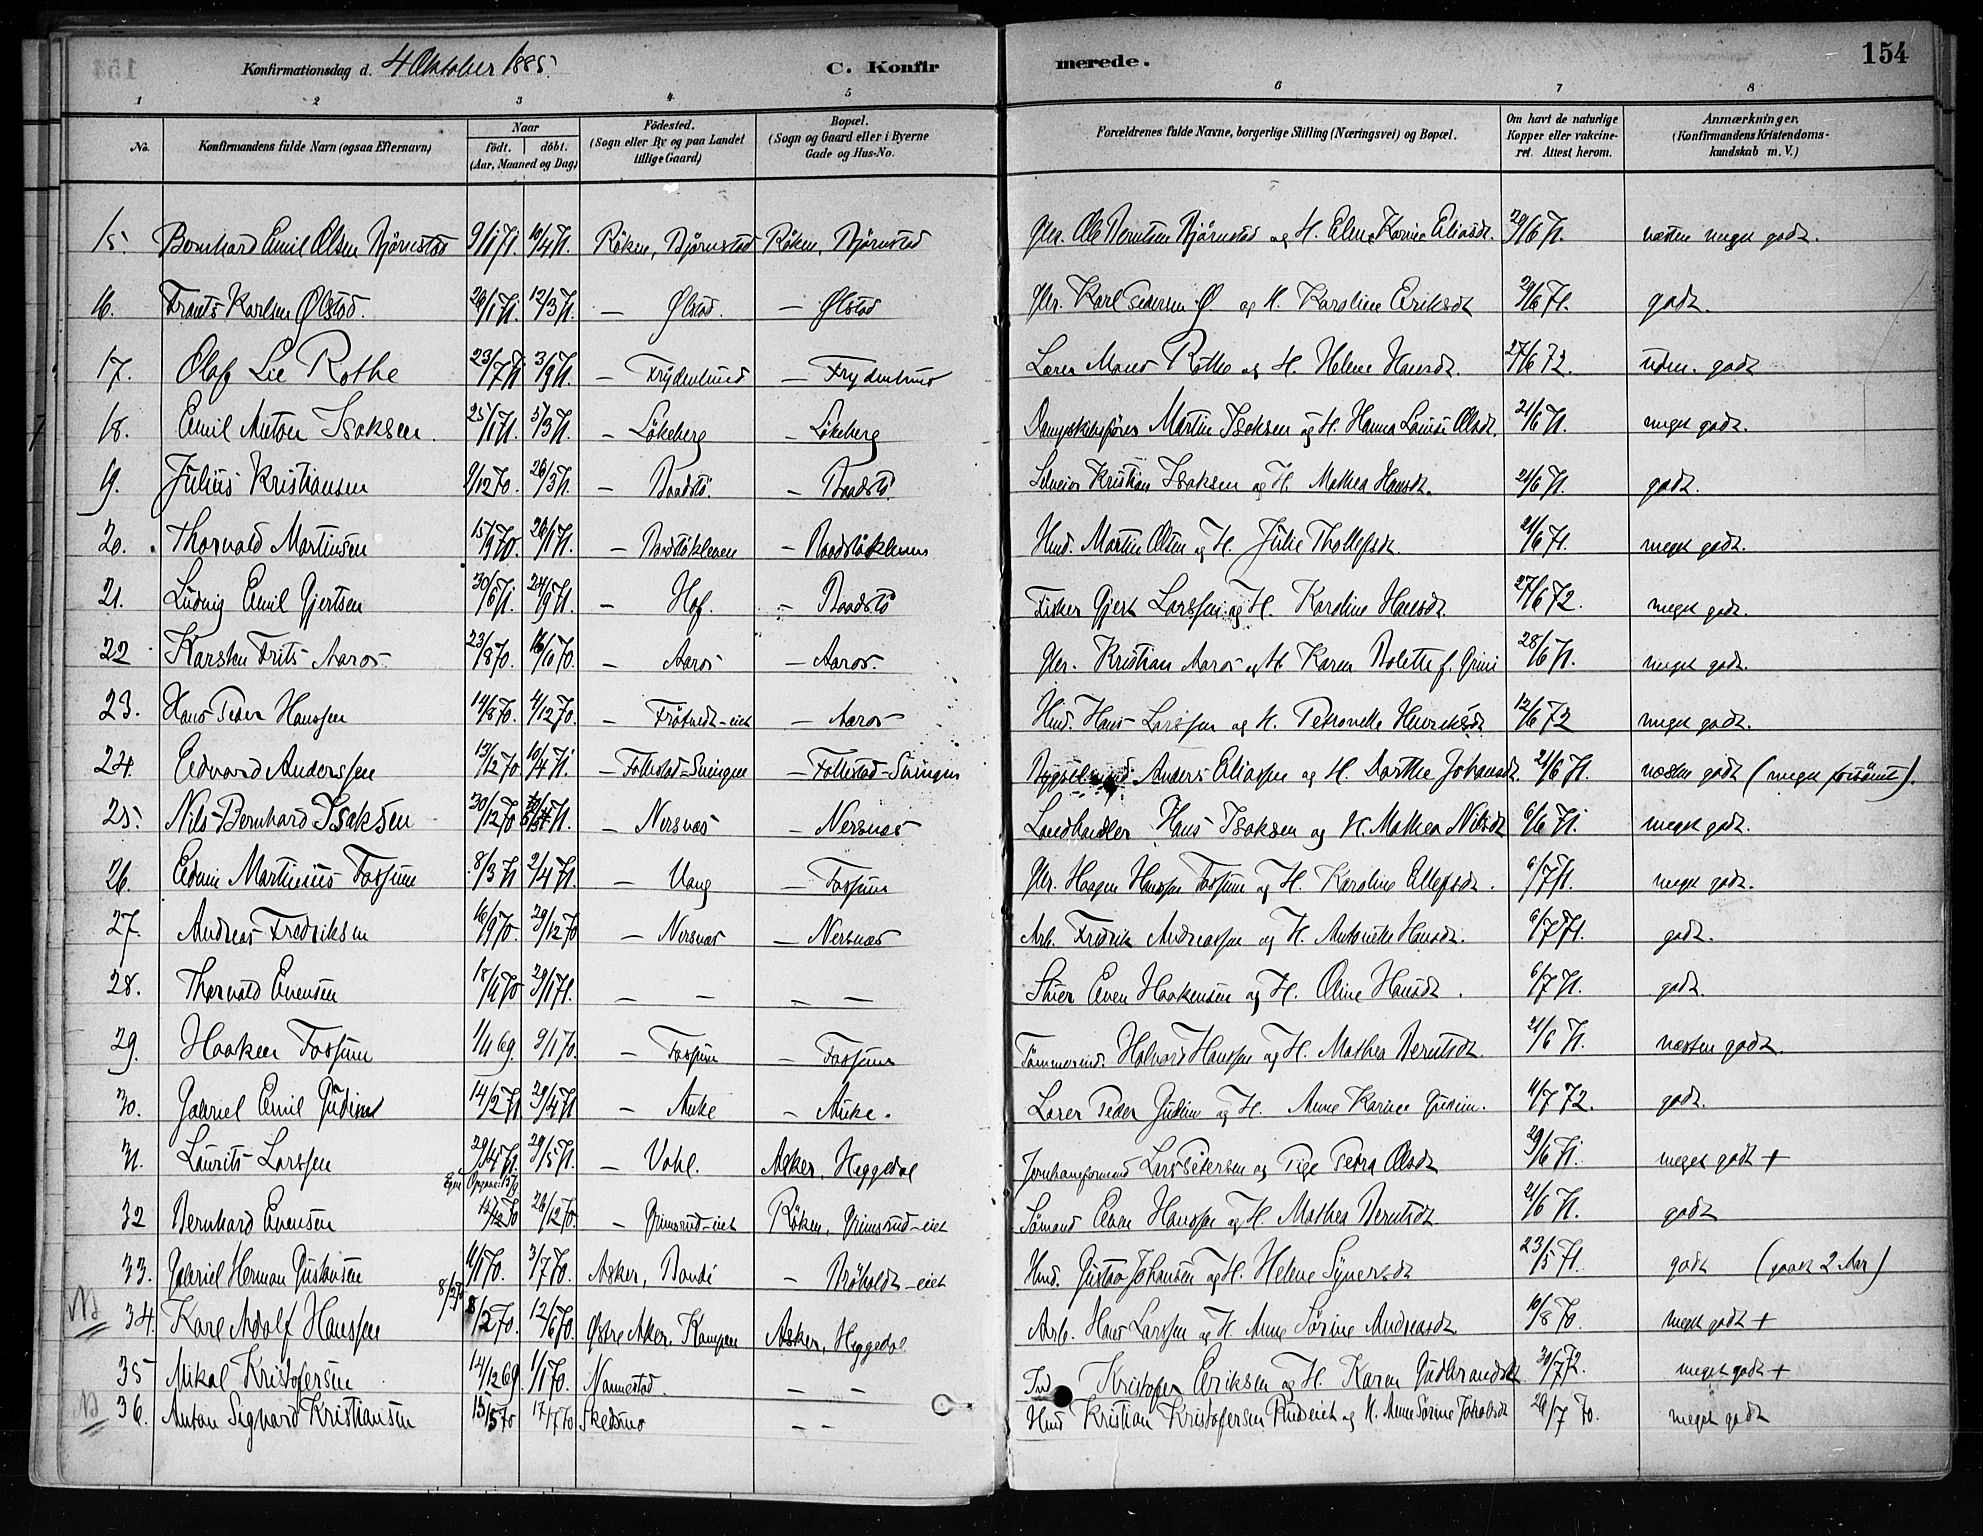 Konfirmationsdag d. 4 Oktober 1885. C. Konfirmerede. 154
1 2 3 4. 5 6 7 8
No. Konfirmandens fulde Navn (ogsaa Efternavn) Naar födt. döbt. (Aar, Maaned og Dag) Födested. (Sogn eller By og paa Landet tillige Gaard) Bopæl. (Sogn og Gaard eller i Byerne Gade og Hus-No. Forældrenes fulde Navne, borgerlige Stilling (Næringsvei) og Bopæl. Om havt de naturlige Kopper eller vakcineret. Attest herom. Anmærkninger. (Konfirmandens Kristendomskundskab m. V.)
15. Bernhard Emil Olsen Björnstad 9/1 71. 10/4 71. Röken, Björnstad Röken, Björnstad Gbr. Ole Berntsen Björnstad og H. Elene Karine Eliasdt. 29/6 71. næsten meget godt.
16. Frants Karlsen Ølstad. 26/1 71. 12/3 71. — Ølstad. — Ølstad Gbr. Karl Pedersen Ø. og H. Karoline Eriksdt 29/6 71. godt.
17. Olaf Lie Rothe 23/7 71 3/9 71. — Frydenlund — Frydenlund Lærer Mons Rothe og H. Helene Hansdt. 27/6 72. udm. godt
18. Emil Anton Isaksen. 25/1 71. 5/3 71. — Lökeberg — Lökeberg Dampskibsförer Martin Isaksen og H. Hanna Louise Olsdt. 21/6 71. meget godt.
19. Julius Kristiansen 9/12 70. 26/3 71. — Baadstö. — Baadstö. Kristian Isaksen og H. Mathea Hansdt. 21/6 71. godt.
20. Thorvald Martinsen 15/9 70. 26/1 71. — Baadstökleven — Baadstökleven Hmd. Martin Olsen og H. Julie Thollefsdt. 21/6 71. meget godt.
21. Ludvig Emil Gjertsen 30/6 71. 24/9 71. — Hof. — Baadstö Fisker Gjert Larssen og H. Karoline Hansdt. 27/6 72. meget godt.
22. Karsten Frits Aaros. 23/8 70. 16/10 70. — Aaros — Aaros. Gbr. Kristian Aaros og H. Karen Bolette f. Grini 28/6 71. meget godt.
23. Hans Peder Hanssen 14/8 70. 4/12 70. — Frötvedt-eiet — Aaros Hmd. Hans Larssen og H. Petronelle Henriksdt 12/6 72 meget godt.
24. Edvard Anderssen 13/12 70 10/4 71. — Follestad-Svingen — Follestad-Svingen Anders Eliassen og H. Dorthe Johansdt 21/6 71. næsten godt (meget forsömt).
25. Nils Bernhard Isaksen 30/12 70 71. — Nersnæs — Nersnæs Landhandler Hans Isaksen og H. Mathea Nilsdt 6/6 71. meget godt.
26. Edvin Martinius Fossum 8/3 71 2/4 71. — Vang — Fossum Gbr. Haagen Hanssen Fossum og H. Karoline Ellefsdt. 6/7 71. meget godt.
27. Andreas Fredriksen 16/9 70. 29/12 70 — Nersnæs — Nersnæs Arb. Fredrik Andreassen og H. Antonette Hansdt. 6/7 71. godt.
28. Thorvald Evensen 18/11 70 29/1 71. — — — — Even Haakensen og H. Oline Hansdt. 6/7 71. godt.
29. Haaken Fossum 1/11 69. 9/1 70. — Fossum — Fossum Tömmermd. Halvord Hanssen og H. Mathea Berntsdt. 21/6 71. næsten godt.
30. Gabriel Emil Gudim 14/2 71 29/4 71 — Auke — Auke. Lærer Peder Gudim og H. Anne Karine Gudim. 4/7 72. godt.
31. Laurits Larssen 29/4 71. 29/5 71. — Vahl. Asker, Heggedal Lars Petersen og Pige Petra Olsdt 29/6 71. meget godt +
Egne Opgave: 15/9
32 Bernhard Evensen 13/12 70 26/12 70. — Grimsrud-eiet Röken, Grimsrud-eiet Sömand Even Hanssen og H. Mathea Berntsdt 21/6 71. godt
33. Gabriel Herman Gustavsen 4/1 70. 3/7 70. Asker, Bondi — Bröholdt-eiet Hmd. Gustav Johansen og H. Helene Syversdt 23/5 71. godt (gaaet 2 Aar)
NB 34. Karl Adolf Hanssen 8/2 70 8/2 70. 12/6 70. Østre Aker. Kampen Asker, Heggedal Arb. Hans Larssen og H. Anne Sörine Andreasdt. 10/8 70. meget godt +
35 Mikal Kristofersen 14/12 69. 1/1 70. Nannestad. — — Ind Kristofer Eriksen og H. Karen Gudbrandsdt. 30/7 72. meget godt +
NB 36. Anton Sigvard Kristiansen 15/5 70 17/7 70 Skedsmo — — Hmd Kristian Kristofersen Rudeiet og H. Anne Sörine Jakobsdt 26/7 70. meget godt